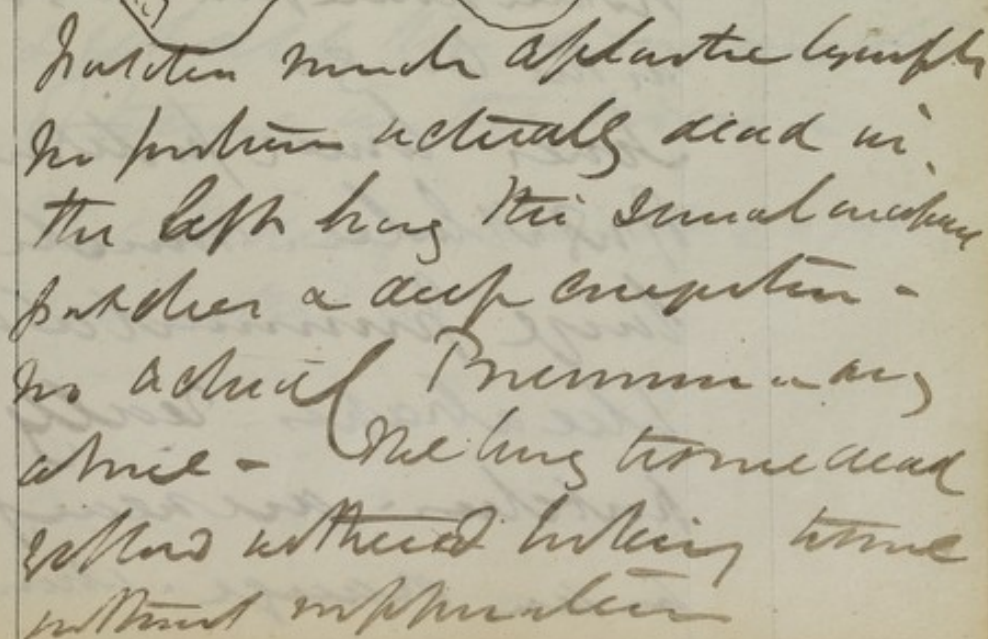 patches much aplastic lymph
no portion actually dead in
the left lung the small
patches a deep congestion -
no actual Pneumonia any
where - The lung tissue dead
yellow withered looking tissue
without suppuration